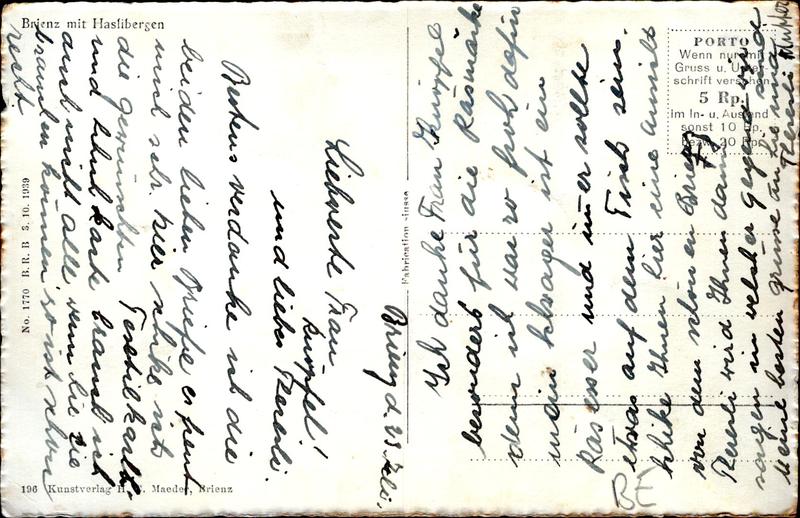 Brienz mit Haslibergen
No. 1770 B. R. B 3. 10. 1939
196 Kunstverlag H. Maeder, Brienz
Fabrication suisse
PORTO
Wenn nur mit
Gruss u. Unter-
schrift versehen
5 Rp.
im In- u. Ausland
sonst 10 Rp.
bezw. 20 Rp.
Brienz d. 23
Liebwerte Frau
Kumpfel!
und liebes Resesli.
Bestens verdanke ich die
beiden lieben Briefe es freut
mich sehr. hier schike ich
die gewünschten Textilkarte
und Schuhkarte brauch ich
auch nicht alle, wenn Sie Sie
brauchen können, so ist schon
recht
Ich danke Frau Kumpfel
besonders für die Käsmarke
denn ich war so froh dafür
mein Schwager ist ein
Käsesser und immer sollte
etwas auf dem Tisch sein.
schike Ihnen hier eine
von dem schönen Brienz
wird Ihnen dann
sagen in welcher Gegend
meine besten Grüsse an Sie und